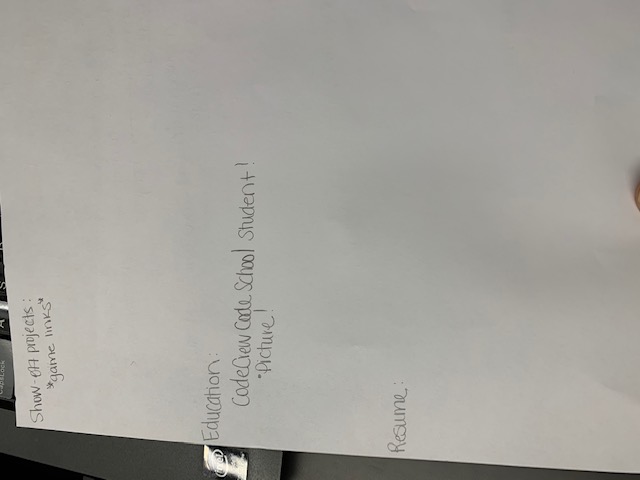 CapsLock
A
S
Show-off projects:
*game links*
Education:
CodeCrew Code School Student!
•Picture!
Resume: